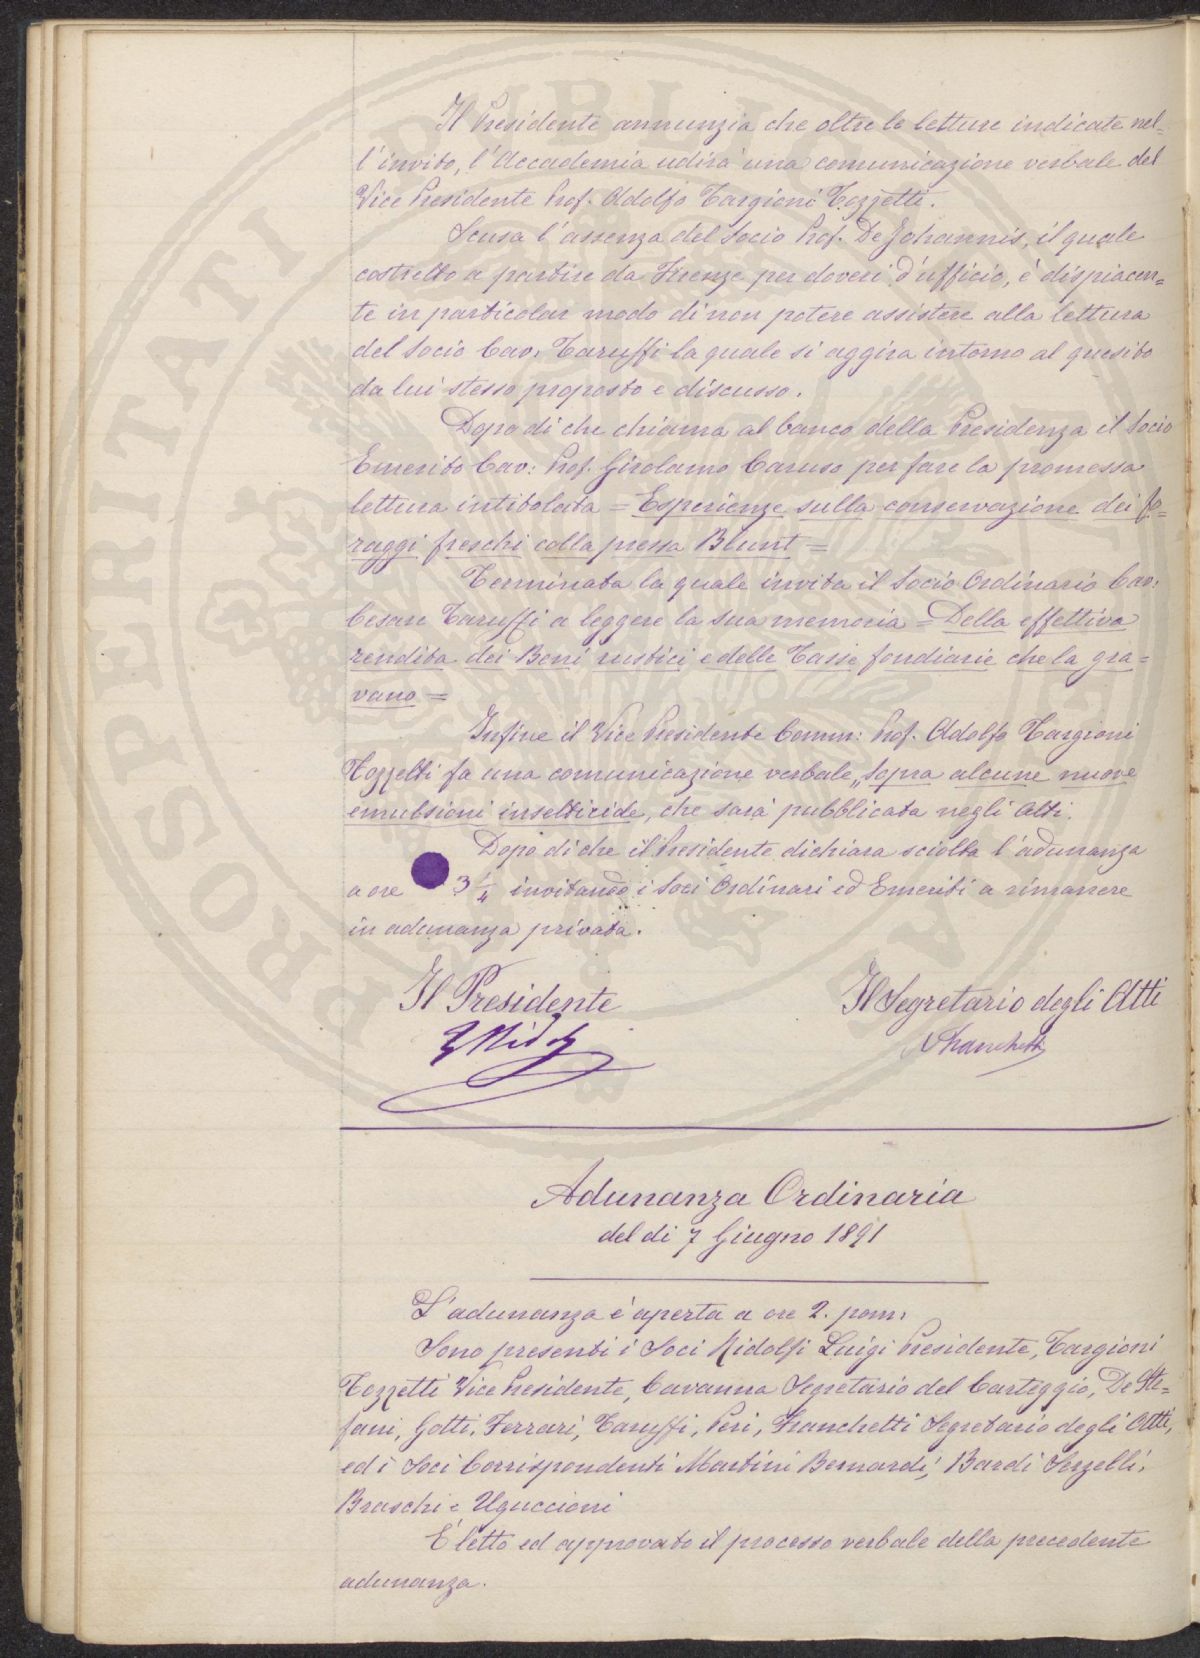 Il Presidente annunzia che oltre le letture indicate nel=
l'invito, l'Accademia udirà una comunicazione verbale del
Vice Presidente Prof. Adolfo Targioni Tozzetti.
Scusa l'assenza del Socio Prof. De Johannis, il quale
costretto a partire da Firenze per doveri d'ufficio, è dispiacen=
te in particolar modo di non potere assistere alla lettura
del Socio Cav. Taruffi la quale si aggira intorno al quesito
da lui stesso proposto e discusso.
Dopo di che chiama al banco della Presidenza il Socio
Emerito Cav: Prof. Girolamo Caruso per fare la promessa
lettura intitolata = Esperienze sulla conservazione dei fo=
raggi freschi colla pressa Blunt =
Terminata la quale invita il Socio Ordinario Cav:
Cesare Taruffi a leggere la sua memoria = Della effettiva
rendita dei Beni rustici e delle Tasse fondiarie che la gra=
vano =
Infine il Vice Presidente Comm: Prof. Adolfo Targioni
Tozzetti fa una comunicazione verbale „ Sopra alcune nuove
emulsioni insetticide, che sarà pubblicata negli Atti.
Dopo di che il Presidente dichiara sciolta l'adunanza
a ore 3 1/4 invitando i Soci Ordinari ed Emeriti a rimanere
in adunanza privata.
Il Presidente Il Segretario degli Atti
L Ridolfi Franchetti
Adunanza Ordinaria
del dì 7 Giugno 1891
L'adunanza è aperta a ore 2. pom.
Sono presenti i Soci Ridolfi Luigi Presidente, Targioni
Tozzetti Vice Presidente, Cavanna Segretario del Carteggio, De Ste=
fani, Gotti, Ferrari, Taruffi, Peri, Franchetti Segretario degli Atti,
ed i Soci Corrispondenti Martini Bernardi, Bardi Serzelli,
Braschi e Uguccioni
È letto ed approvato il processo verbale della precedente
adunanza.
PROSPERITATI PUBLICAE